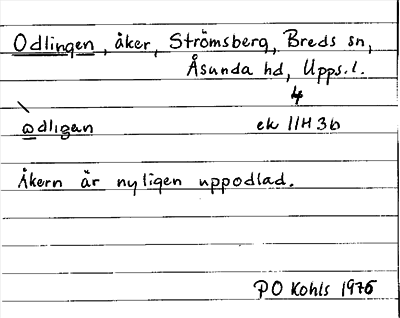 Odlingen, åker, Strömsberg, Breds sn,
Åsunda hd, Upps. l.
4
òdlıgan ek 11H3b
Åkern är nyligen uppodlad.
PO Kohls 1976